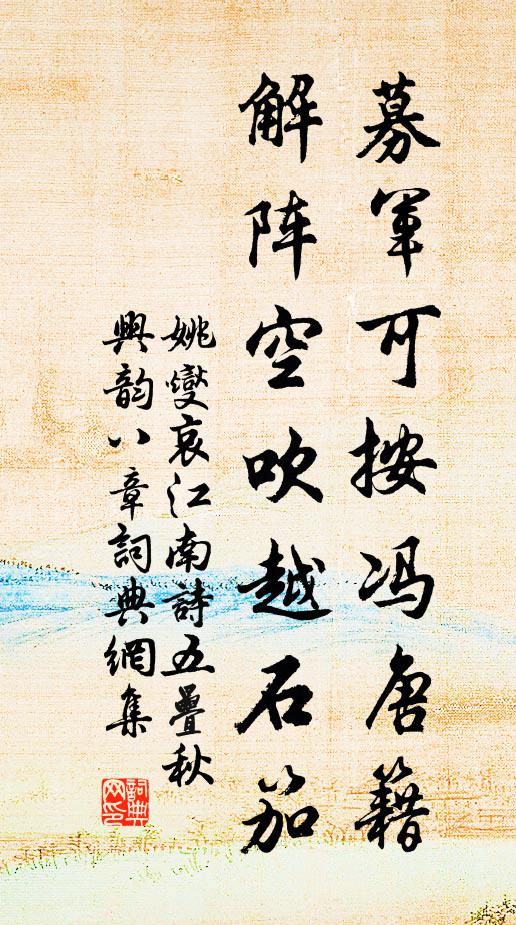 募军可按冯唐籍
解阵空吹越石笳
姚燮哀江南詩五疊秋
興韵八章詞典網集
詞典
网印